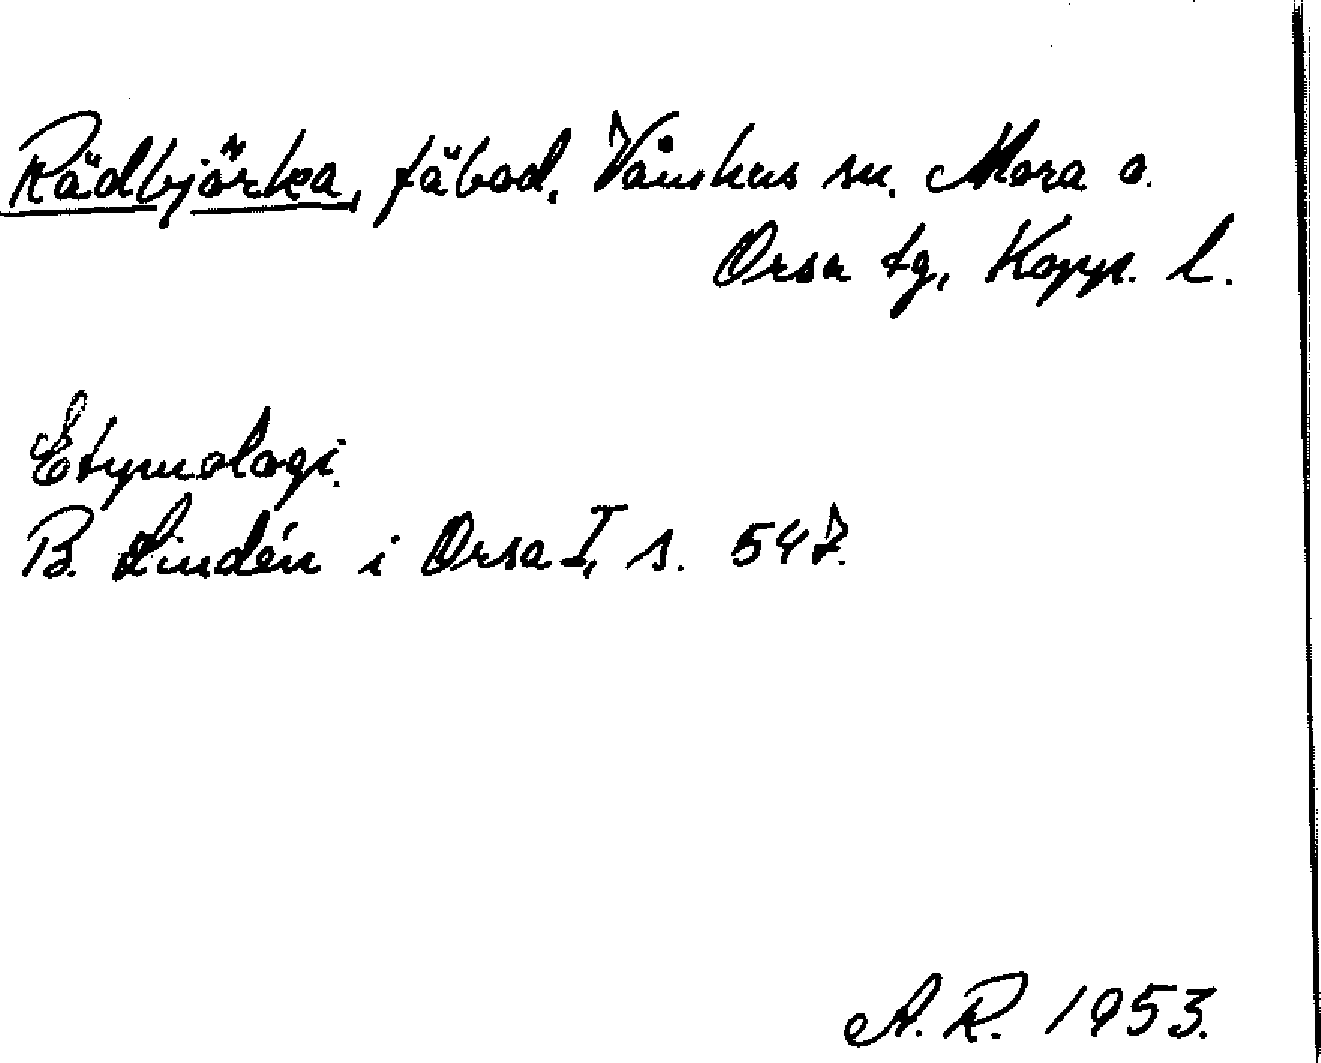 Rädbjörka, fäbod, Våmhus sn. Mora o.
Orsa tg, Kopp. l.
Etymologi.
B. Lindén i Orsa I, s. 547.
A. R. 1953.